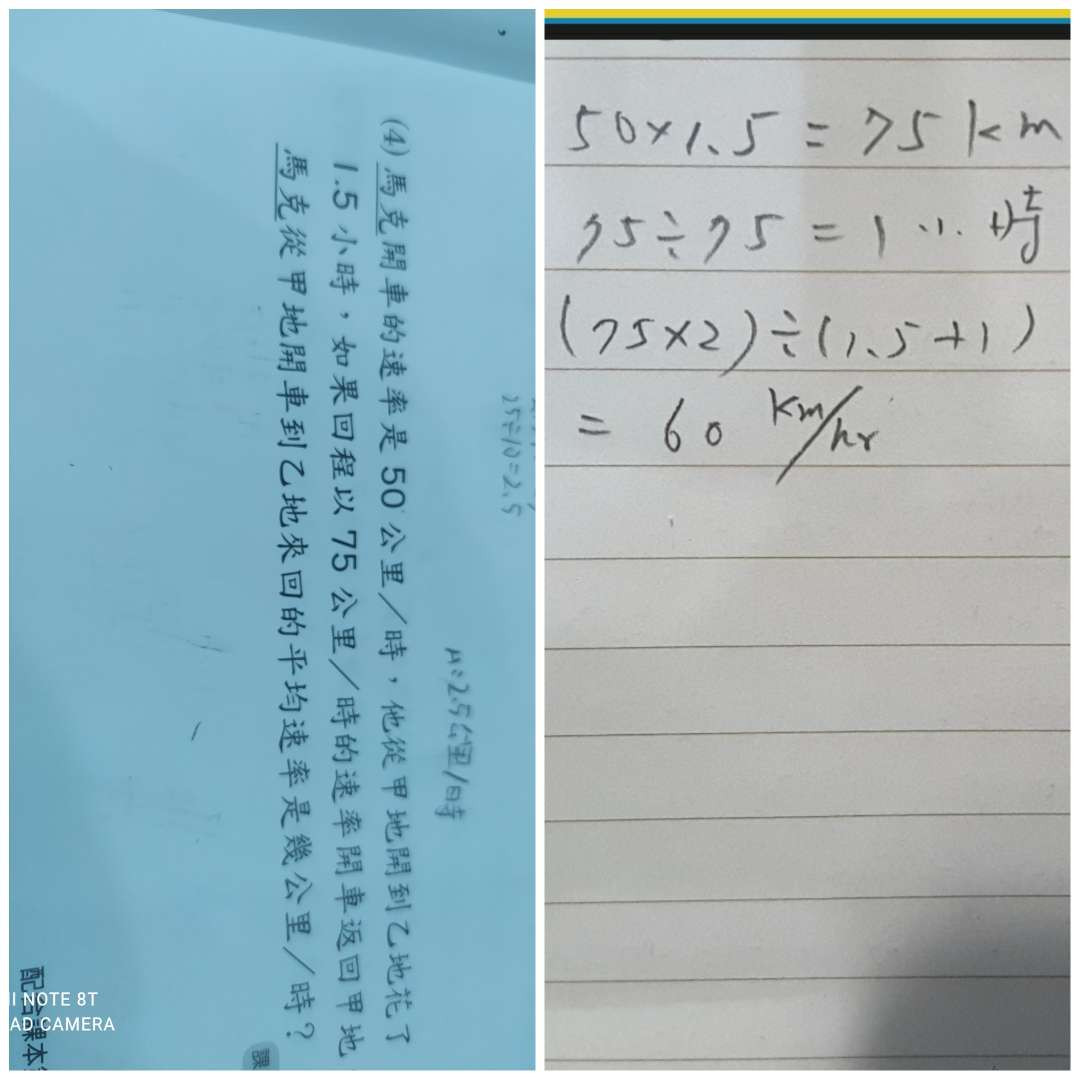 25÷10=2.5
A:2.5公里/時
(4)馬克開車的速率是50公里/時，他從甲地開到乙地花了
1.5小時，如果回程以75公里/時的速率開車返回甲地
馬克從甲地開車到乙地來回的平均速率是幾公里/時？
課
配合課本
I NOTE 8T
AD CAMERA
50×1.5=75km
75÷75=1小時
(75×2)÷(1.5+1)
=60 km/hr